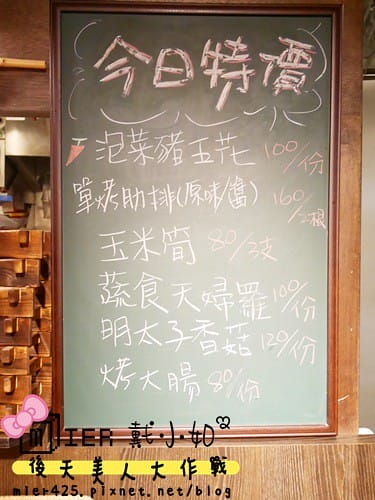 今日特價
泡菜豬五花 100/份
單烤肋排(原味/醬) 160/2根
玉米筍 80/3支
蔬食天婦羅 100/份
明太子香菇 120/份
烤大腸 80/份
MIER 戴小如
後天美人大作戰
mier425.pixnet.net/blog